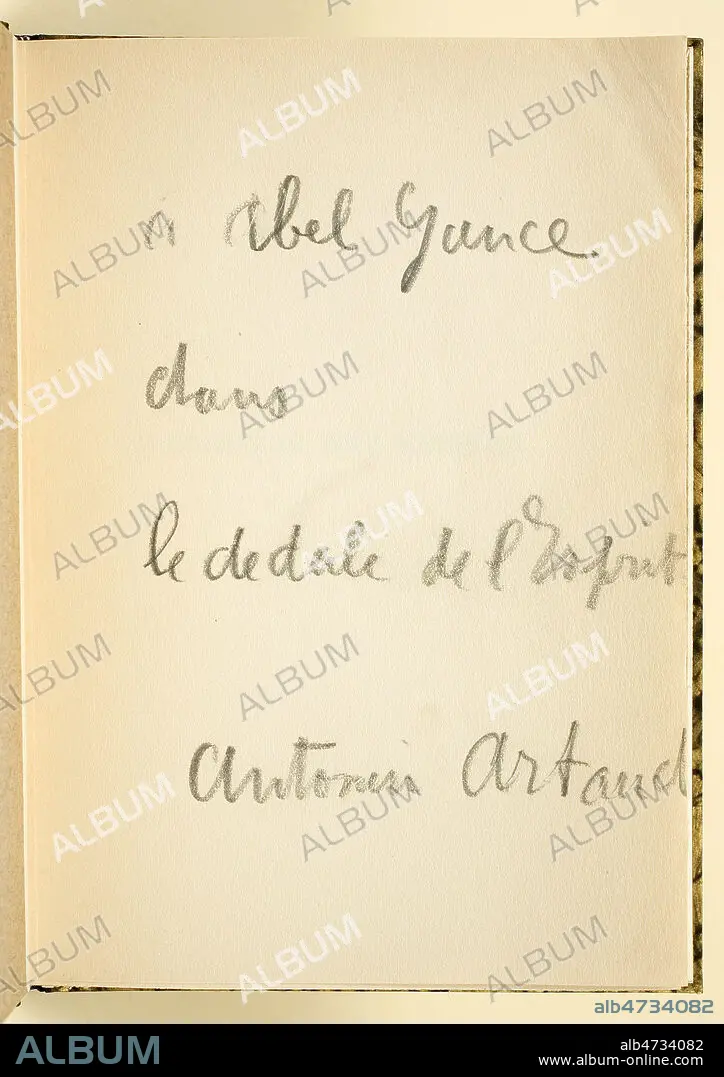 à Abel Gance
dans
le dedale de l'Esprit
Antonin Artaud
ALBUM
alb4734082
ALBUM
alb4734082
www.album-online.com